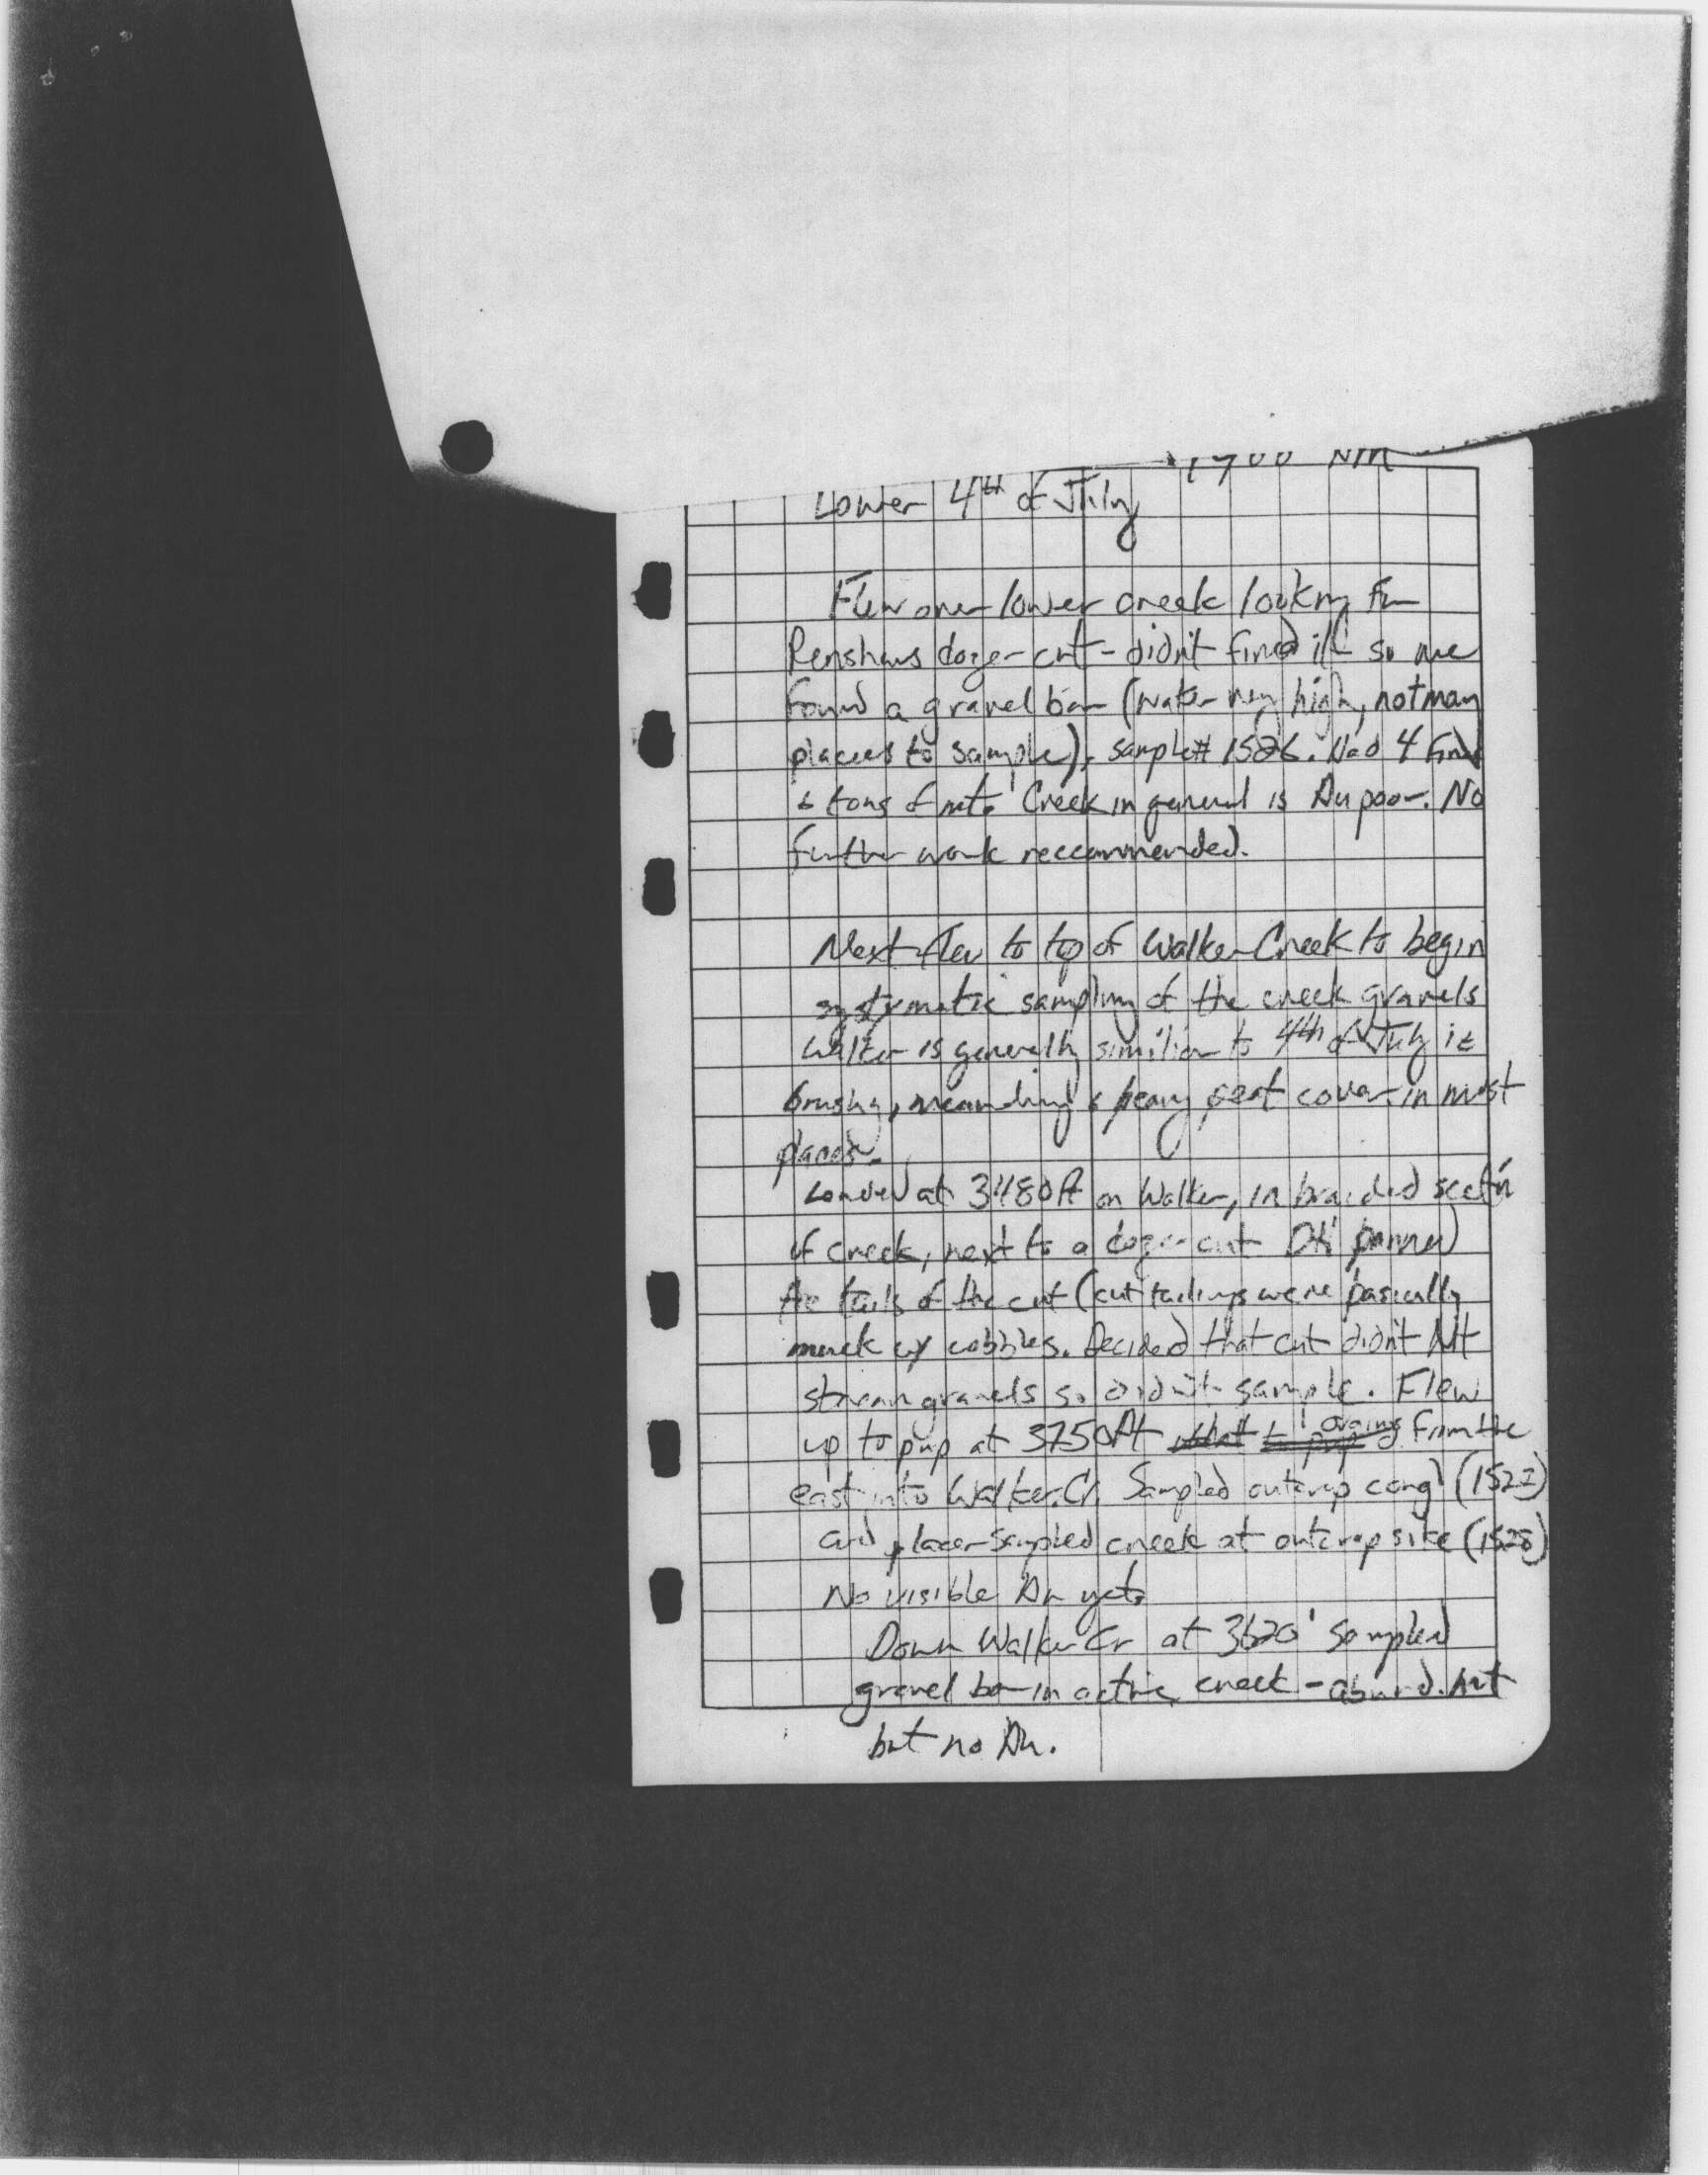 Lower 4th of July
Flew over lower creek looking for
Renshaws dozer cut - didn't find it so we
found a gravel bar (water very high, not many
places to sample), sample# 1526. Had 4 fines
& tons of mt. Creek in general is Au poor. No
further work reccommended.
Next flew to top of Walker Creek to begin
systymatic sampling of the creek gravels
Walker is generally similiar to 4th of July ie
brushy, meandring & heavy peat cover in most
places.
Landed at 3480ft on Walker, in braided sect'n
of creek, next to a dozer cut DK panned
the tails of the cut (cut tailings were basically
muck w/ cobbles. Decided that cut didn't hit
stream gravels so didn't sample. Flew
up to pup at 3750ft draining from the
east into Walker Cr. Sampled outcrop congl (1527)
and placer sampled creek at outcrop site (1528)
No visible Au yet.
Down Walker Cr at 3620' sampled
gravel bar in active creek - abund. mt
but no Au.